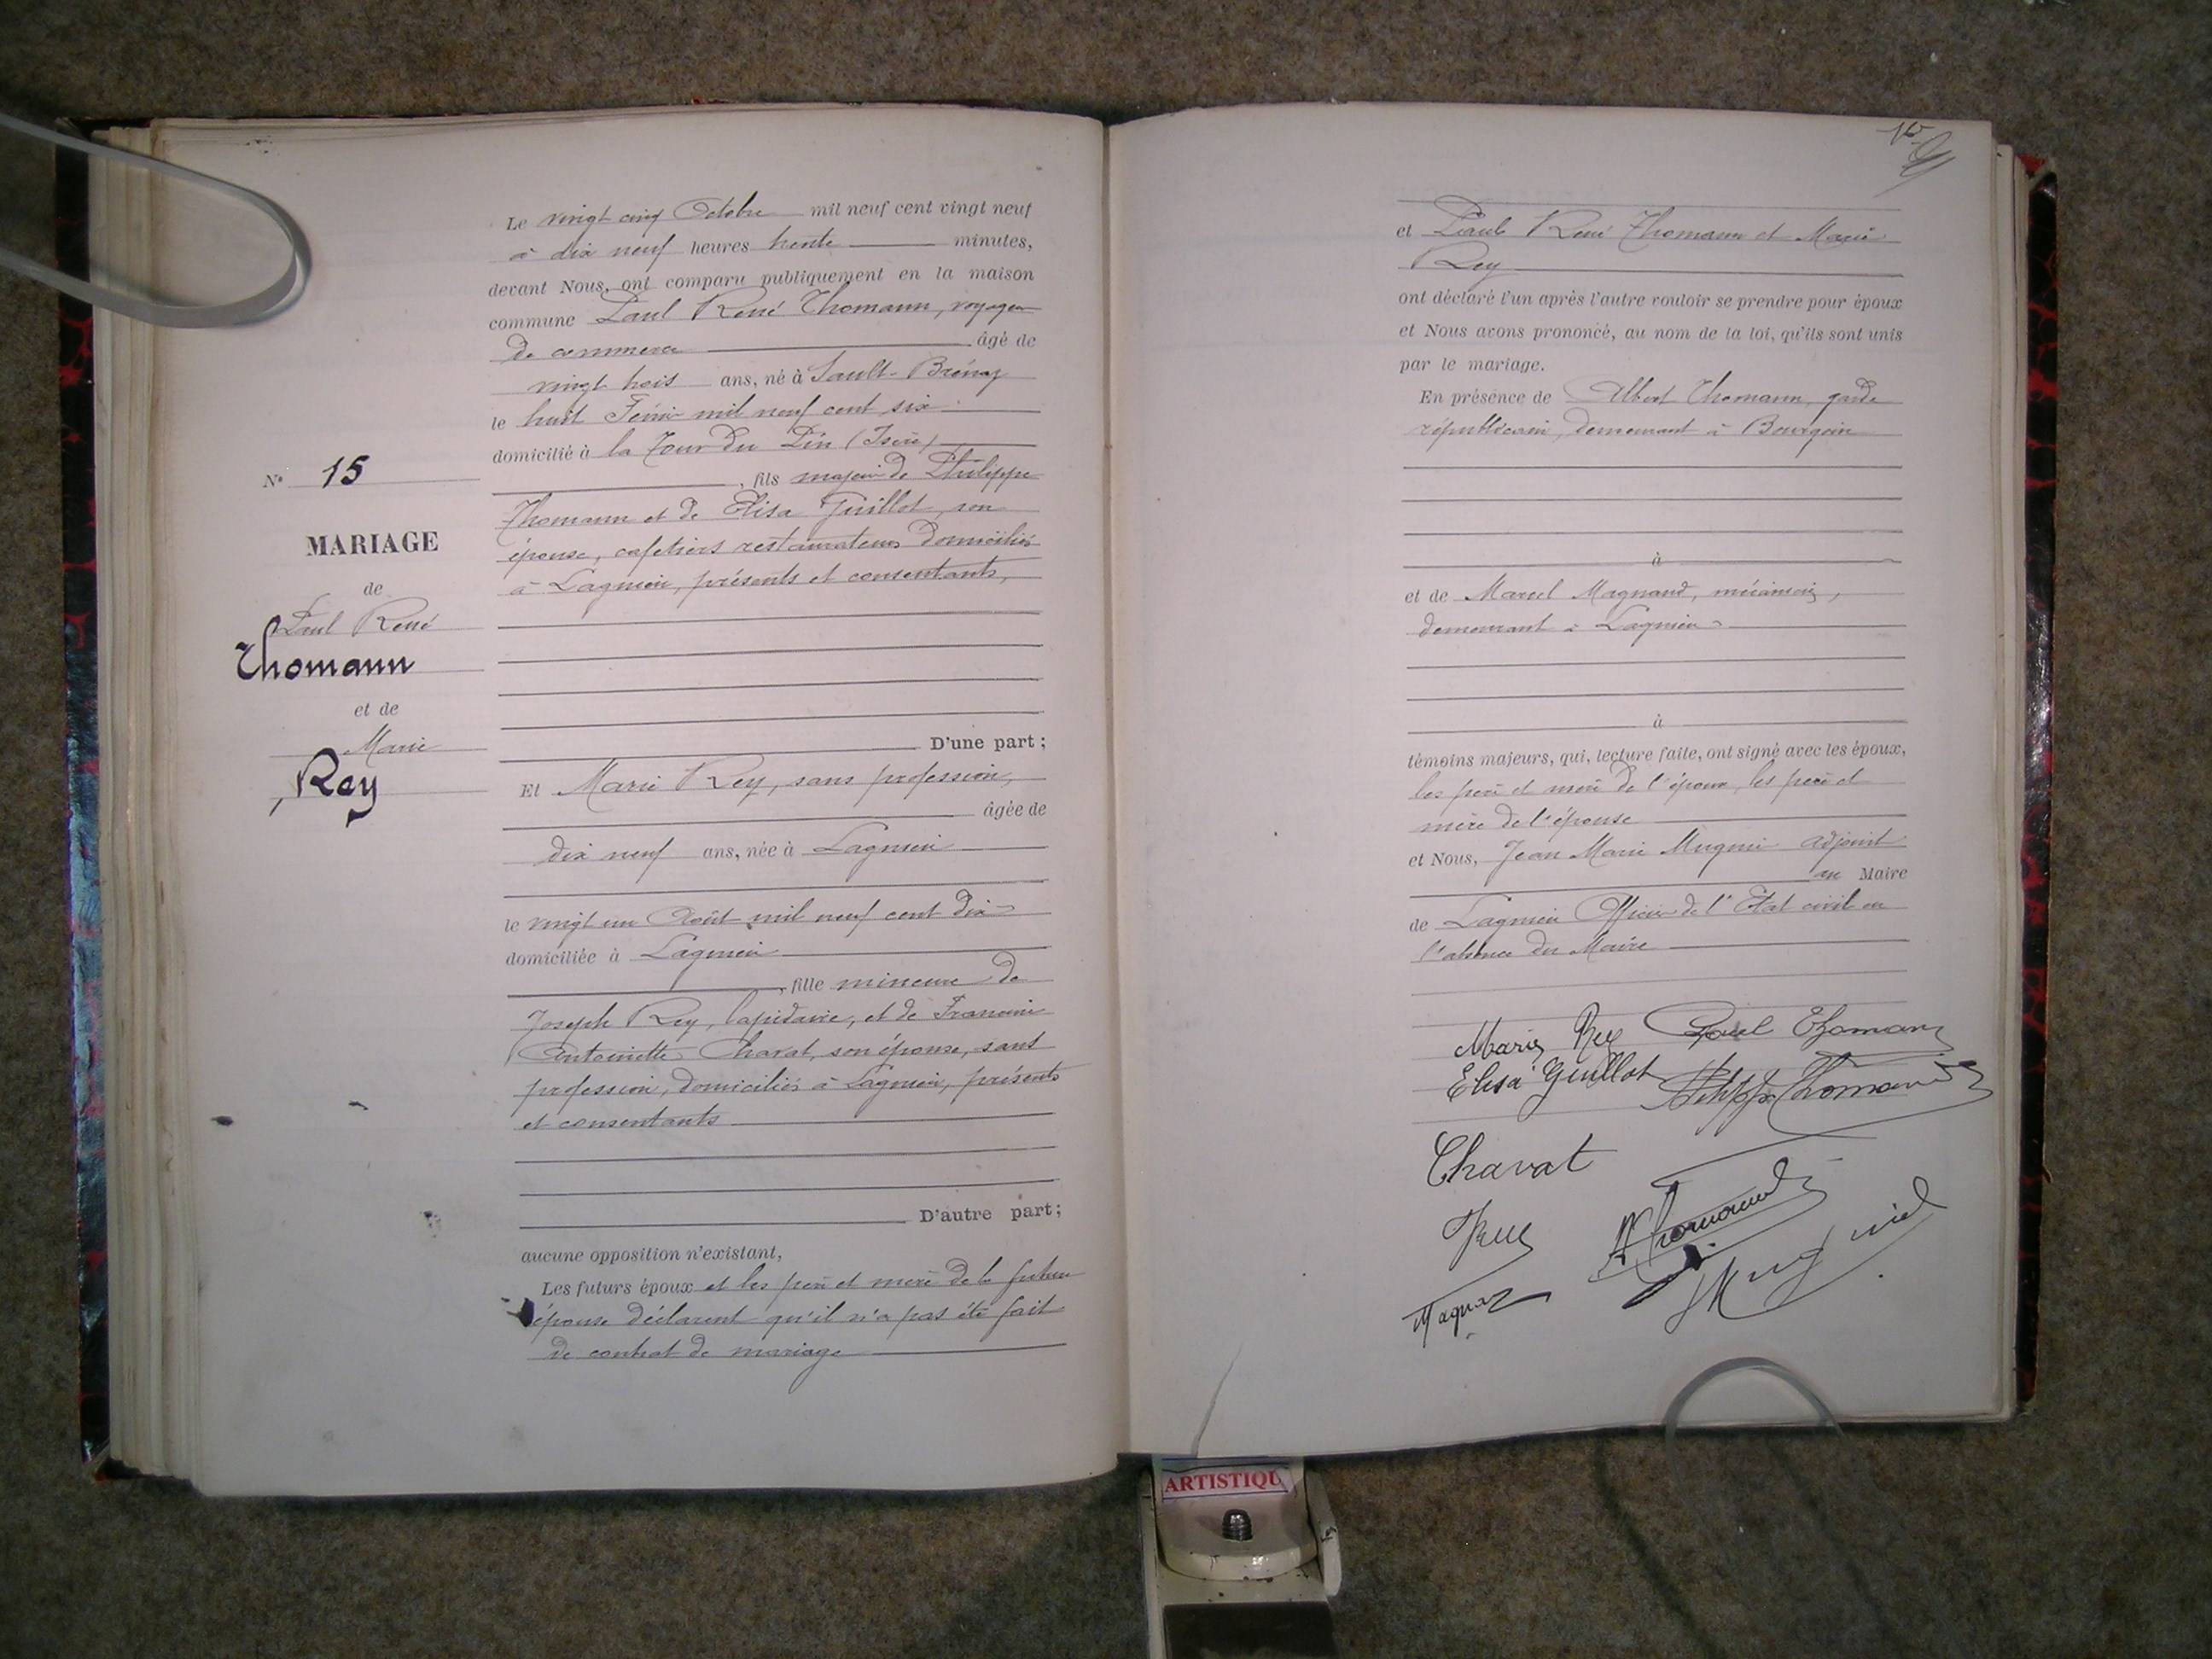 Le vingt cinq Octobre mil neuf cent vingt neuf
à dix neuf heures trente minutes,
devant Nous, ont comparu publiquement en la maison
commune Paul René Thomann, voyageur
de commerce âgé de
vingt trois ans, né à Sault-Brénaz
le huit Février mil neuf cent six
domicilié à la Tour du Pin (Isère)
, fils majeur de Philippe
Thomann et de Elisa Guillot, son
épouse, cafetiers restaurateurs domiciliés
à Lagnieu, présents et consentants,
D'une part ;
Et Marie Rey, sans profession,
âgée de
dix neuf ans, née à Lagnieu
le vingt un Août mil neuf cent dix
domiciliée à Lagnieu
, fille mineure de
Joseph Rey, lapidaire, et de Francine
Antoinette Chavat, son épouse, sans
profession, domiciliés à Lagnieu, présents
et consentants
D'autre part ;
aucune opposition n'existant,
Les futurs époux et les père et mère de la future
épouse déclarent qu'il n'a pas été fait
de contrat de mariage
N° 15
MARIAGE
de
Paul René
Thomann
et de
Marie
Rey
et Paul René Thomann et Marie
Rey
ont déclaré l'un après l'autre vouloir se prendre pour époux
et Nous avons prononcé, au nom de la loi, qu'ils sont unis
par le mariage.
En présence de Albert Thomann, garde
républicain, demeurant à Bourgoin
à
et de Marcel Magnand, mécanicien,
demeurant à Lagnieu
à
témoins majeurs, qui, lecture faite, ont signé avec les époux,
les père et mère de l'époux, les père et
mère de l'épouse
et Nous, Jean Marie Mugnier adjoint
au Maire
de Lagnieu Officier de l'Etat civil en
l'absence du Maire
Marie Rey Paul Thomann
Elisa Guillot Philippe Thomann
Chavat
A Thomann
ARTISTIQU